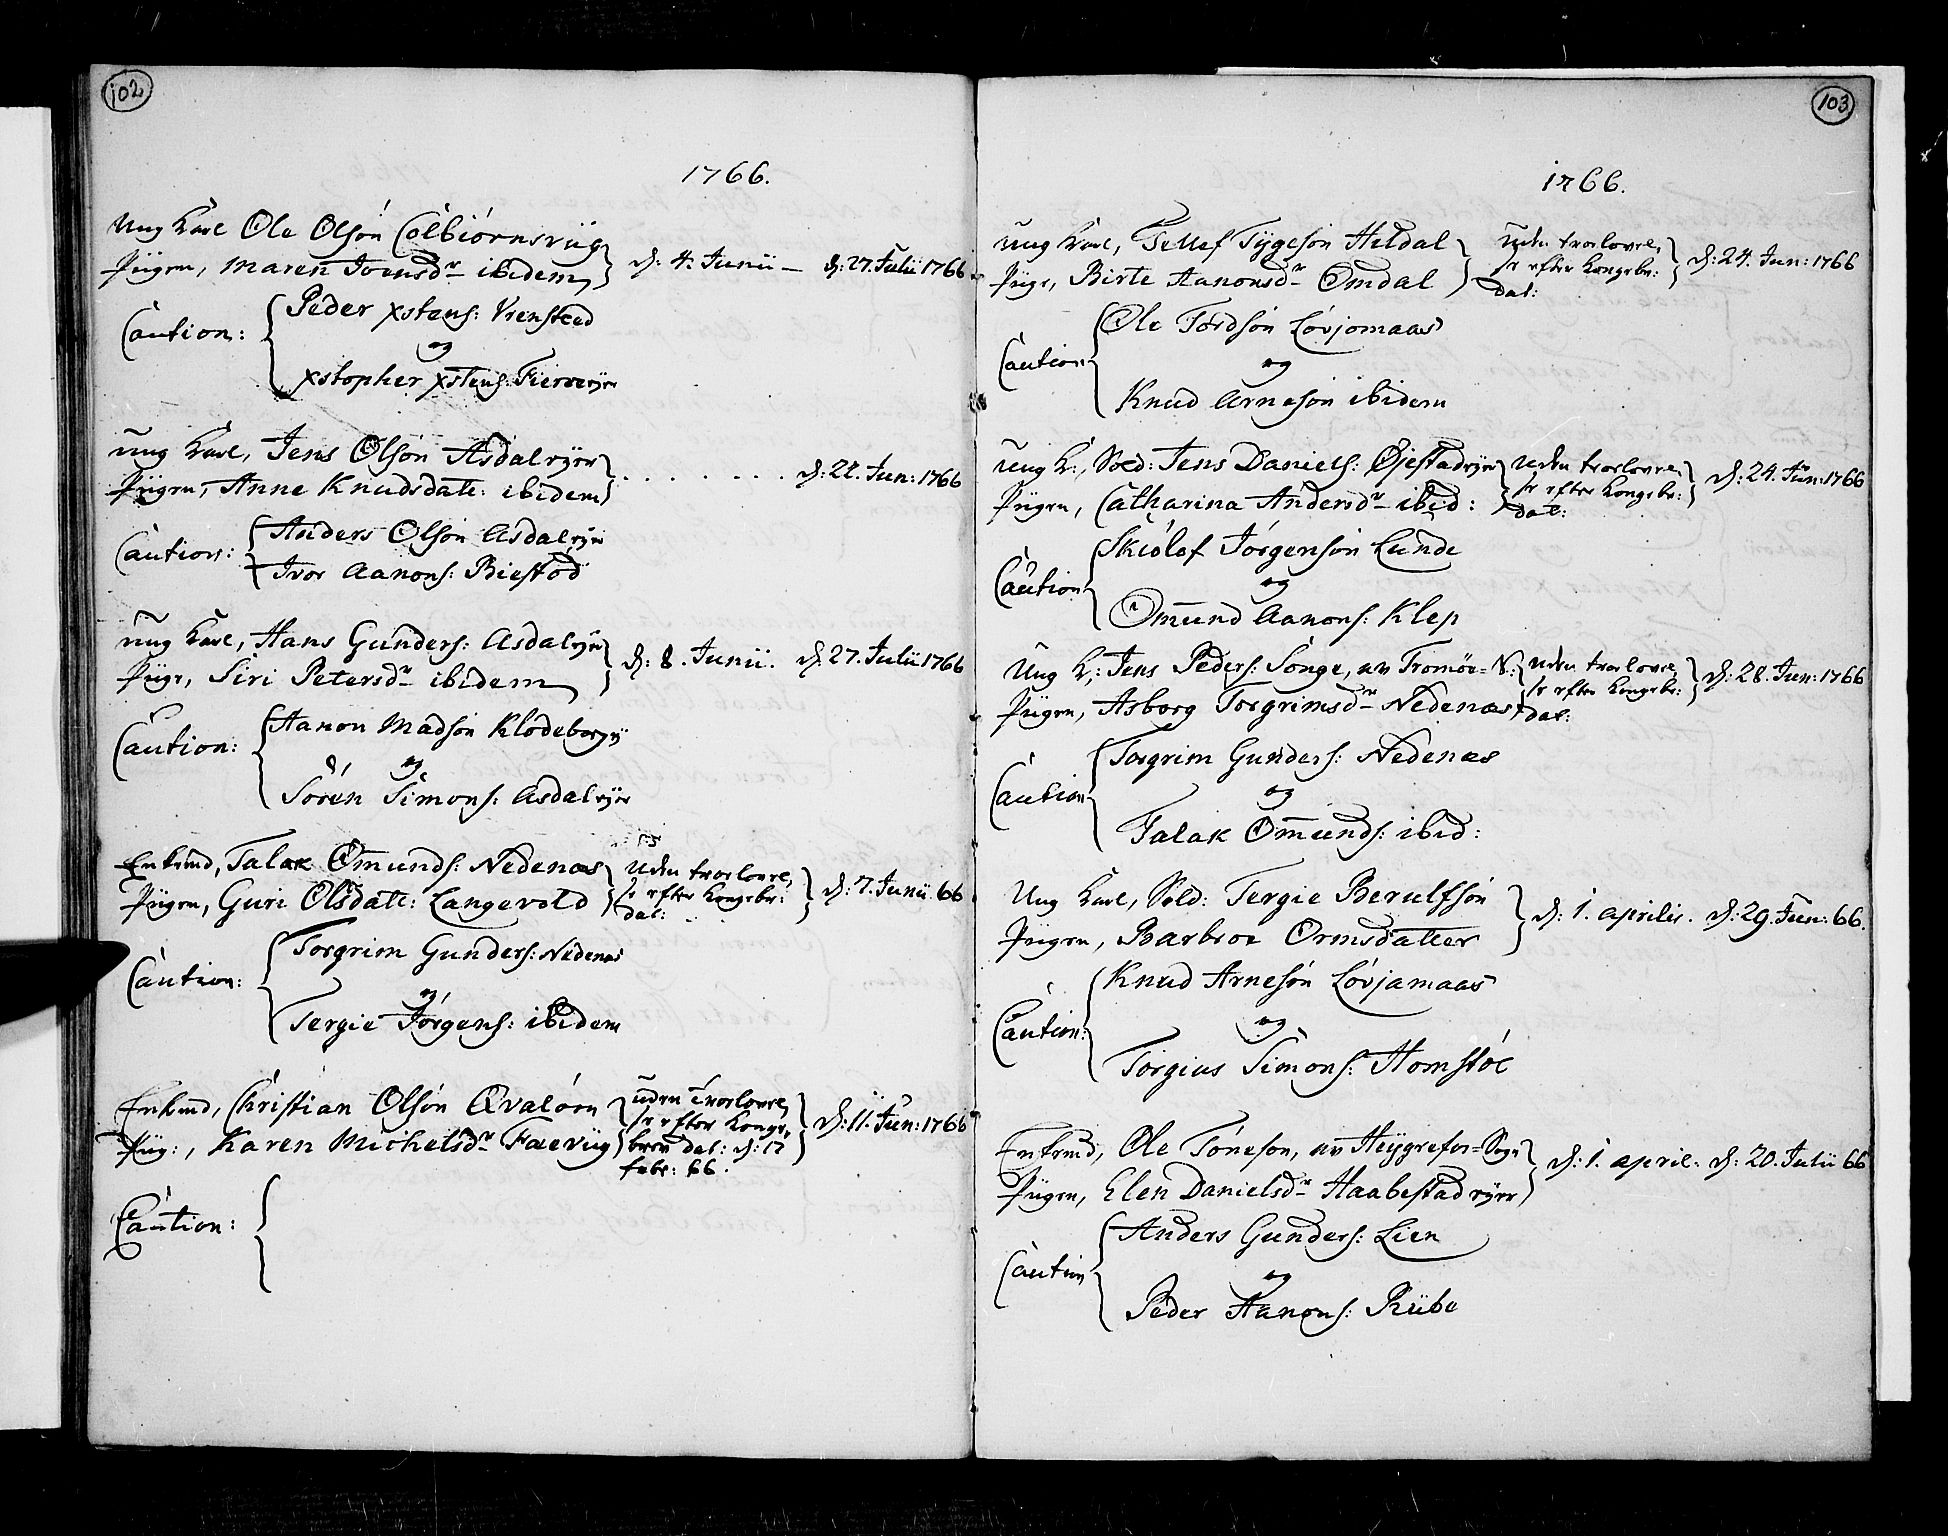 102
1766.
Ung Karl Ole Olsön Colbiörnsviig
Piigen, Maren Joensdr ibidem
d: 4. Junii — d: 27. Julii 1766
Caution:
Peder xstens: Vrensteed
og
xstopher xstens: Fierreijer
Ung Karl, Jens Olsön Asdaleijer
Piigen, Anne Knudsdate: ibidem
d: 22. Jun: 1766
Caution:
Anders Olsön Asdaleijer
Ivor Aanons: Biestöd
Ung Karl, Hans Gunders: Asdaleijer
Piige, Siri Petersdr ibidem
d: 8. Junii. d. 27. Julii 1766
Caution:
Aanon Madsön Klodeborgeij
og
Sören Simons: Asdaleijer
Enkmd, Talak Omunds: Nedenæs
Piigen, Guri Olsdate: Langevold
Uden trorlovre,
se efter Kongebr:
dat:
d: 7. Junii 66
Caution:
Torgrim Gunders: Nedenæs
og
Tergie Jörgens: ibidem
Enkmd, Christian Olsön Qvaløen
Piig:, Karen Michelsdr Faeviig
uden trorlovre,
se efter Konge,
brev dat: d: 17
febr: 66.
d: 11. Jun: 1766
Caution:
103
1766.
Ung Karl, Tellef Tygesön Hildal
Piige, Birte Aanonsdr Omdal
Uden trorlovre,
se efter Kongebr:
dat:
d: 24. Jun: 1766
Caution
Ole Tordsön Lovjomaas
og
Knud Arnesön ibidem
Ung K:, Sold: Jens Daniels: Øjestadeijer
Piigen, Catharina Andersdr ibid:
Uden trorlovre,
se efter Kongebr:
dat:
d: 24. Jun: 1766
Caution
Skiölef Jörgensön Lunde
og
Omund Aanons: Klep
Ung K,: Jens Peders: Songe, av Tromöe-S:
Piigen, Asborg Torgrimsdr Nedenæs
Uden trorlovre,
se efter Kongebr:
dat:
d: 28. Jun: 1766
Caution
Torgrim Gunders: Nedenæs
og
Talak Omunds: ibid:
Ung Karl, Sold: Tergie Berulfsön
Piigen, Barbroe Ormsdatter
d: 1. aprilis. d: 29. Jun: 66.
Caution:
Knud Arnesön Lovjamaas
og
Torgius Simons: Homstöl
Enkmd, Ole Tönesön, av Heygrefos-Sogn
Piigen, Elen Danielsdr Haabestadeijer
d: 1. april. d: 20. Julii 66
Caution
Anders Gunders: Lien
og
Peder Aanons: Rübe